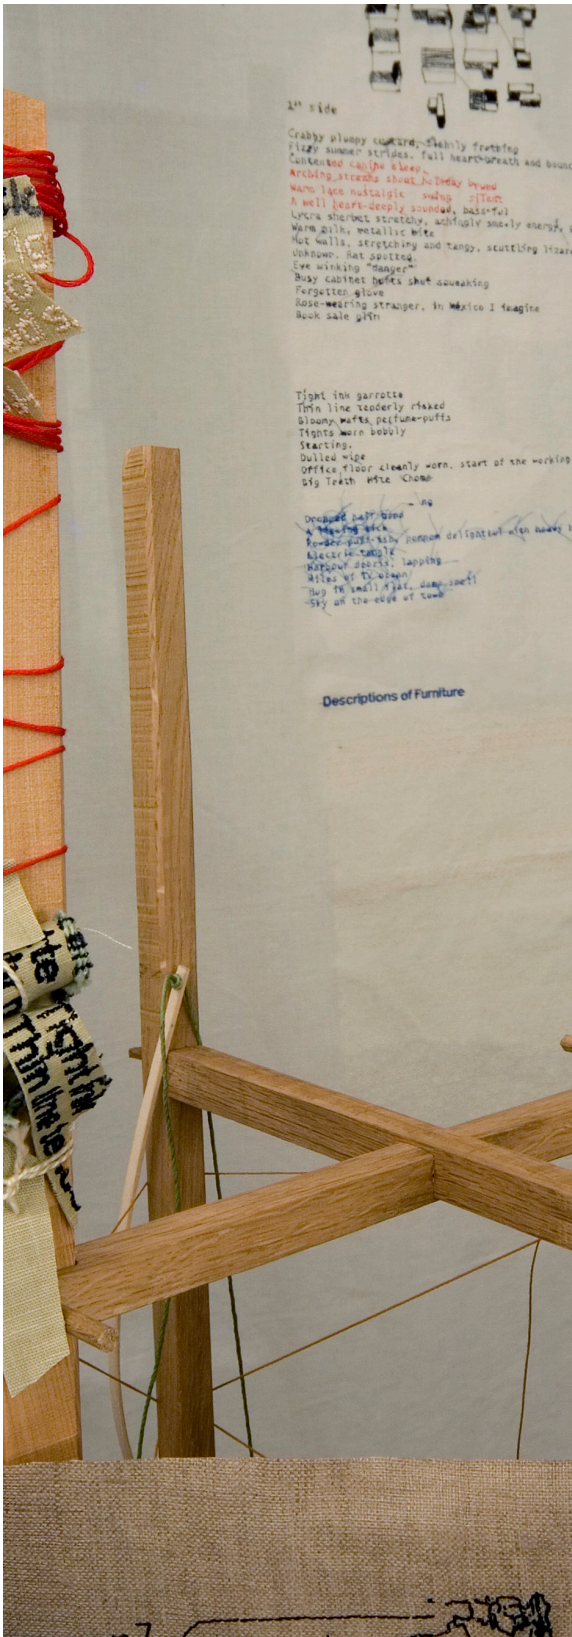 1st side
Crabby plumpy custard, slightly frothing
Fizzy summer strides, full heart-breath and
Contented canine sleep.
Arching streets shoot holiday bound
Warm lace nostalgic swing
A well heart-deeply sounded, bass-ful
Lycra sherbet stretchy, achingly energy,
Warm milk, metallic bite
Hot walls, stretching and tangy, scuttling
Unknown. Rat spotted.
Eye winking "danger"
Busy cabinet shut squeaking
Forgotten glove
Rose-wearing stranger, in México I imagine
Book sale
Tight ink garrotte
Thin line tenderly risked
Gloomy wafts, perfume-puffs
Tights worn bobbly
Starting.
Dulled wipe
Office floor cleanly worn, start of the working
Big Teeth Bite Chomp
ng
Dropped hair band
A
delightful with heavy
Electric
Harbour debris, lapping
Miles of
Hug in small flat, damp smell
Sky on the edge of town
Descriptions of Furniture
Thin line te